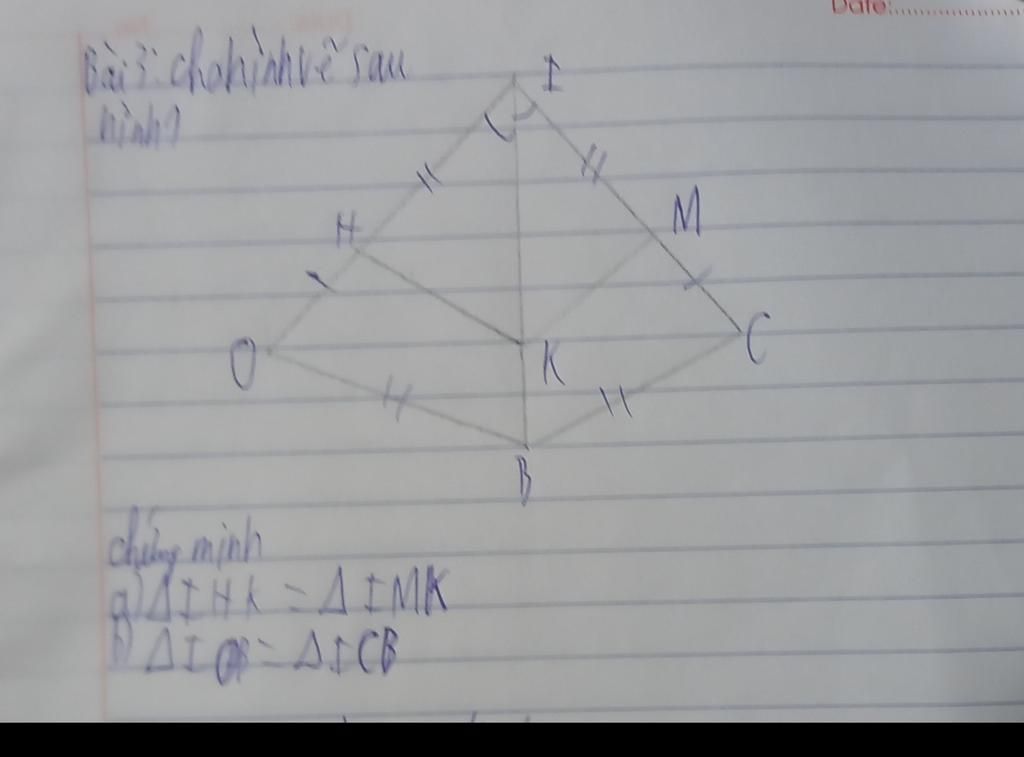 Date:
Bài 3: cho hình vẽ sau
hình 1
I
H
M
O
K
C
B
chứng minh
a) Δ I H K = Δ I M K
b) Δ I OB = Δ I C B